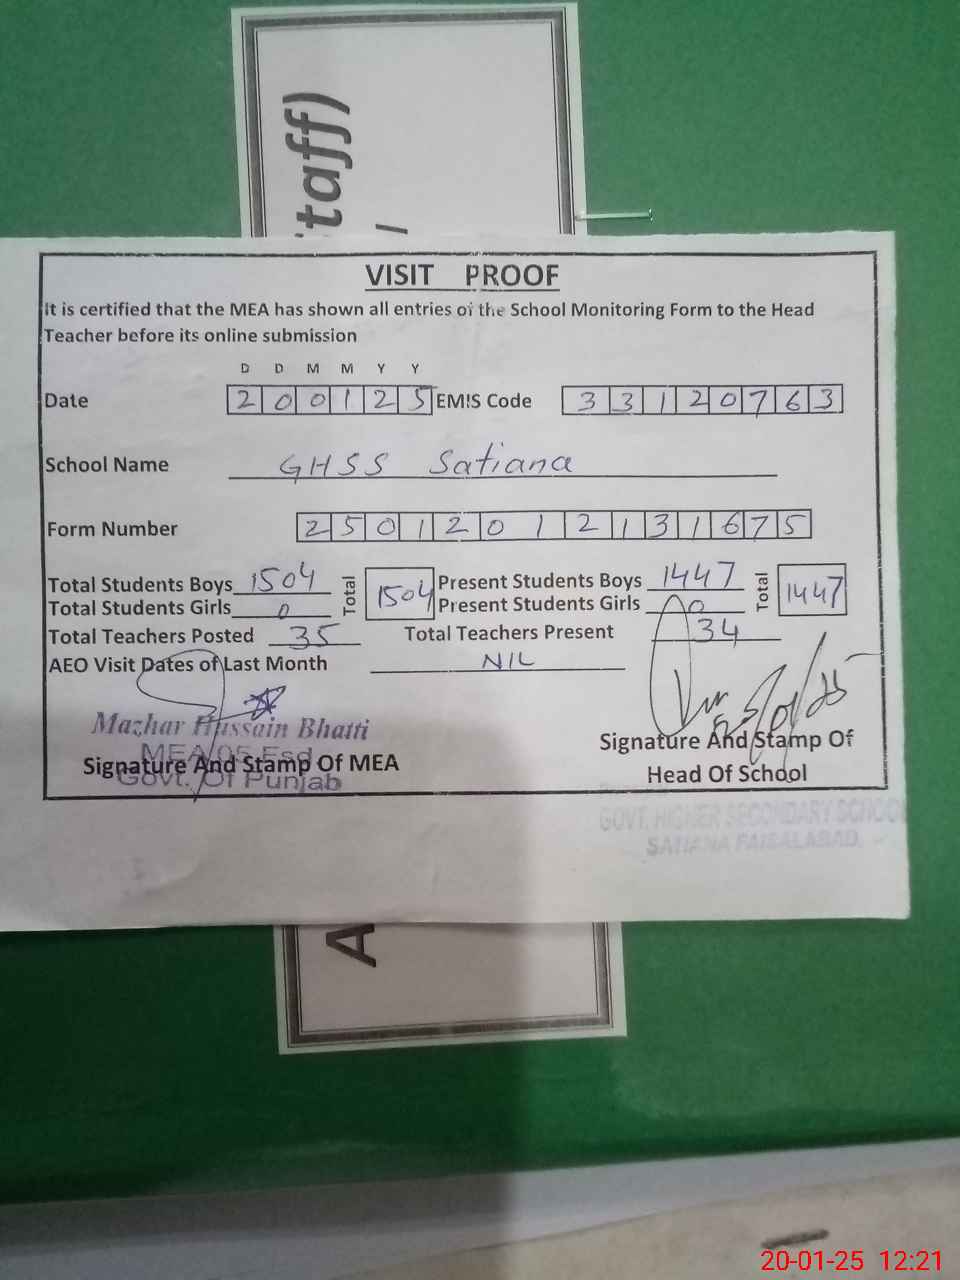 taff)
VISIT PROOF
It is certified that the MEA has shown all entries of the School Monitoring Form to the Head
Teacher before its online submission
D D M M Y Y
Date 2 0 0 1 2 5 EMIS Code 3 3 1 2 0 7 6 3
School Name GHSS Satiana
Form Number 2 5 0 1 2 0 1 2 1 3 1 6 7 5
Total Students Boys 1504 Total 1504 Present Students Boys 1447 Total 1447
Total Students Girls 0 Present Students Girls 0
Total Teachers Posted 35 Total Teachers Present 34
AEO Visit Dates of Last Month NIL
Mazhar Hussain Bhatti
MEA/05 Fsd
Signature And Stamp Of MEA
Govt. Of Punjab
Signature And Stamp Of
Head Of School
GOVT. HIGHER SECONDARY SCHOOL
SATIANA FAISALABAD.
A
20-01-25 12:21